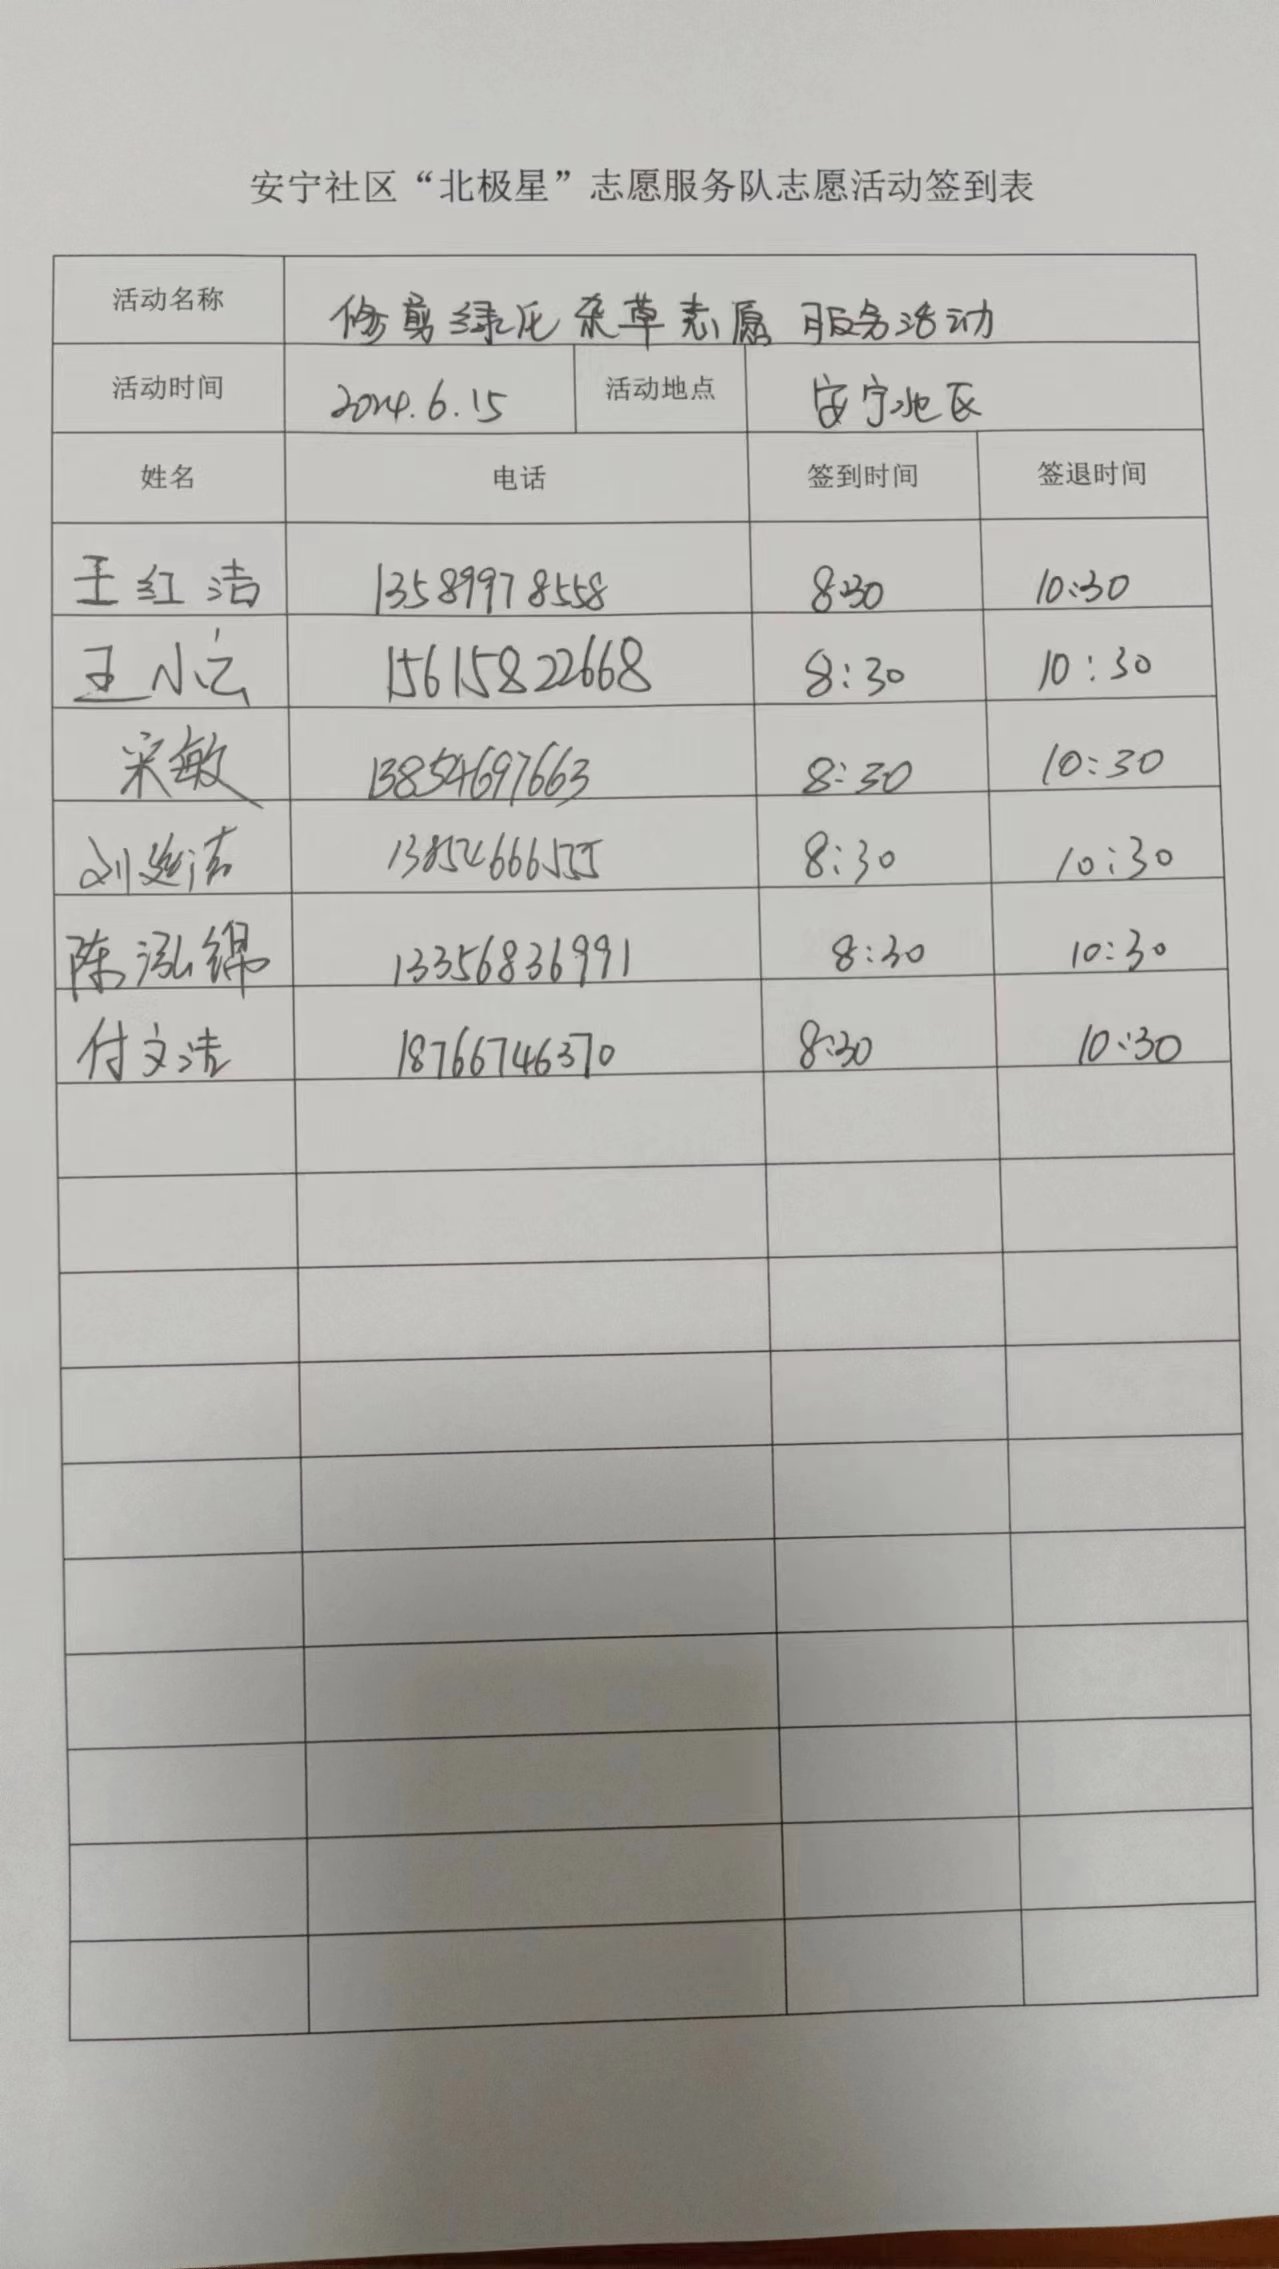 安宁社区“北极星”志愿服务队志愿活动签到表
活动名称 修剪绿化杂草志愿服务活动
活动时间 2024.6.15 活动地点 安宁地区
姓名 电话 签到时间 签退时间
王红洁 13589978558 8:30 10:30
王小云 15615822668 8:30 10:30
宋敏 13854697663 8:30 10:30
刘 洁 13854666555 8:30 10:30
陈泓锦 13356836991 8:30 10:30
付文洁 18766746370 8:30 10:30